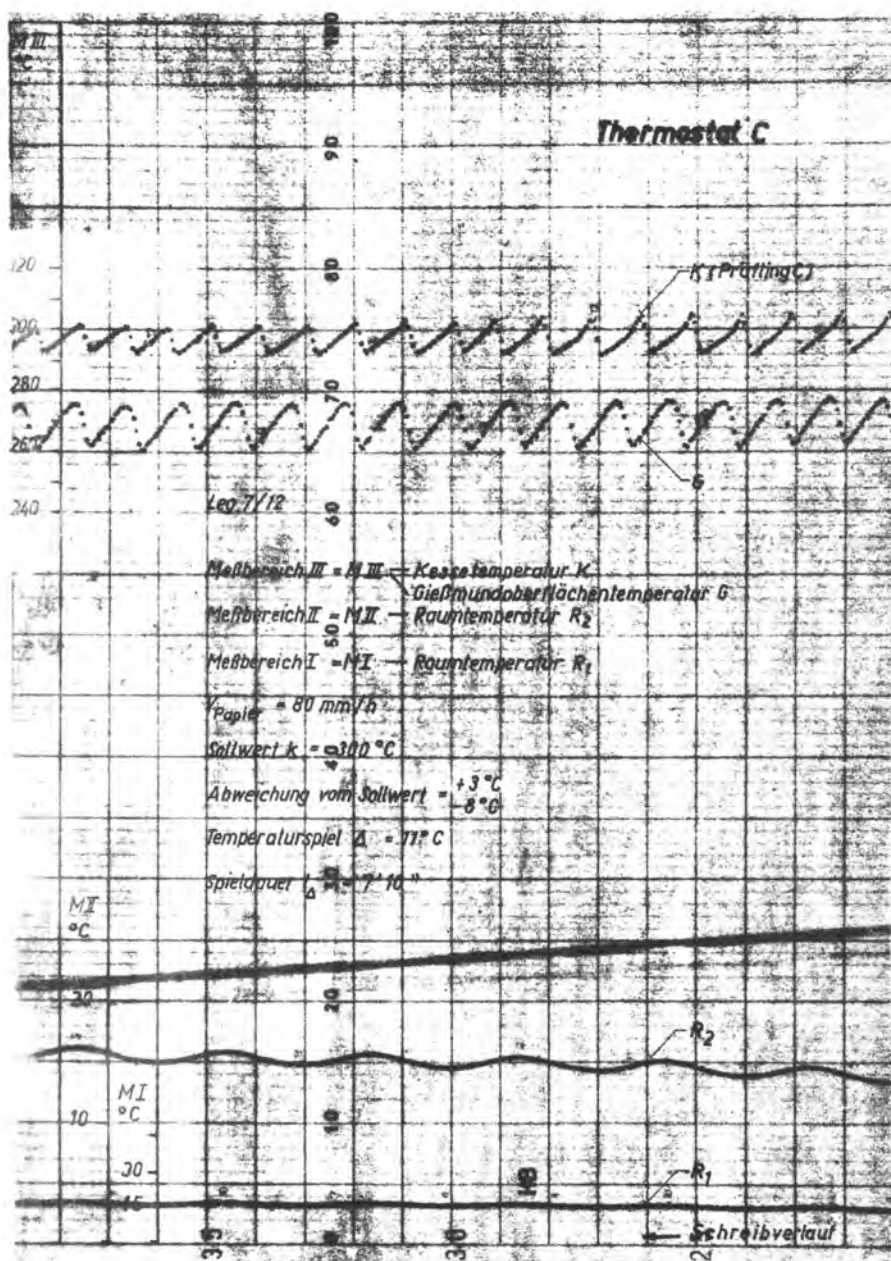 M III
°C
100
Thermostat C
90
120
80
K (Prüfling C)
300
280
70
260
G
240
Leg. 7/12
60
Meßbereich III = M III — Kesseltemperatur K
Gießmundoberflächentemperatur G
Meßbereich II = M II — Raumtemperatur R2
50
Meßbereich I = M I — Raumtemperatur R1
V Papier = 80 mm/h
Sollwert K = 300 °C
40
Abweichung vom Sollwert = +3 °C
-8 °C
Temperaturspiel Δ = 11° C
Spieldauer tΔ = 7' 10"
30
M II
°C
20
20
R2
M I
°C
10
10
30
R1
HB
15
0
Schreibverlauf
35
30
2